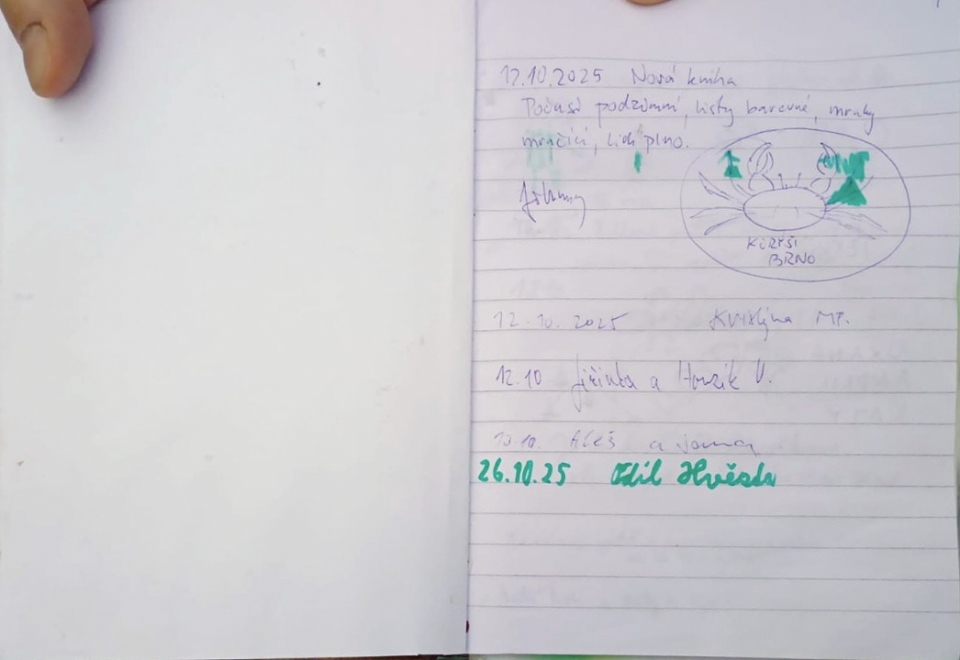 12.10.2025 Nová kniha
Počasí podzimní, listy barevné, mraky
mračící, lidí plno.
KRYŠI
BRNO
12.10.2025 Kristýna MP.
12.10 Jiřinka a Honzík V.
Aleš a
26.10.25 Oddíl Hvězda